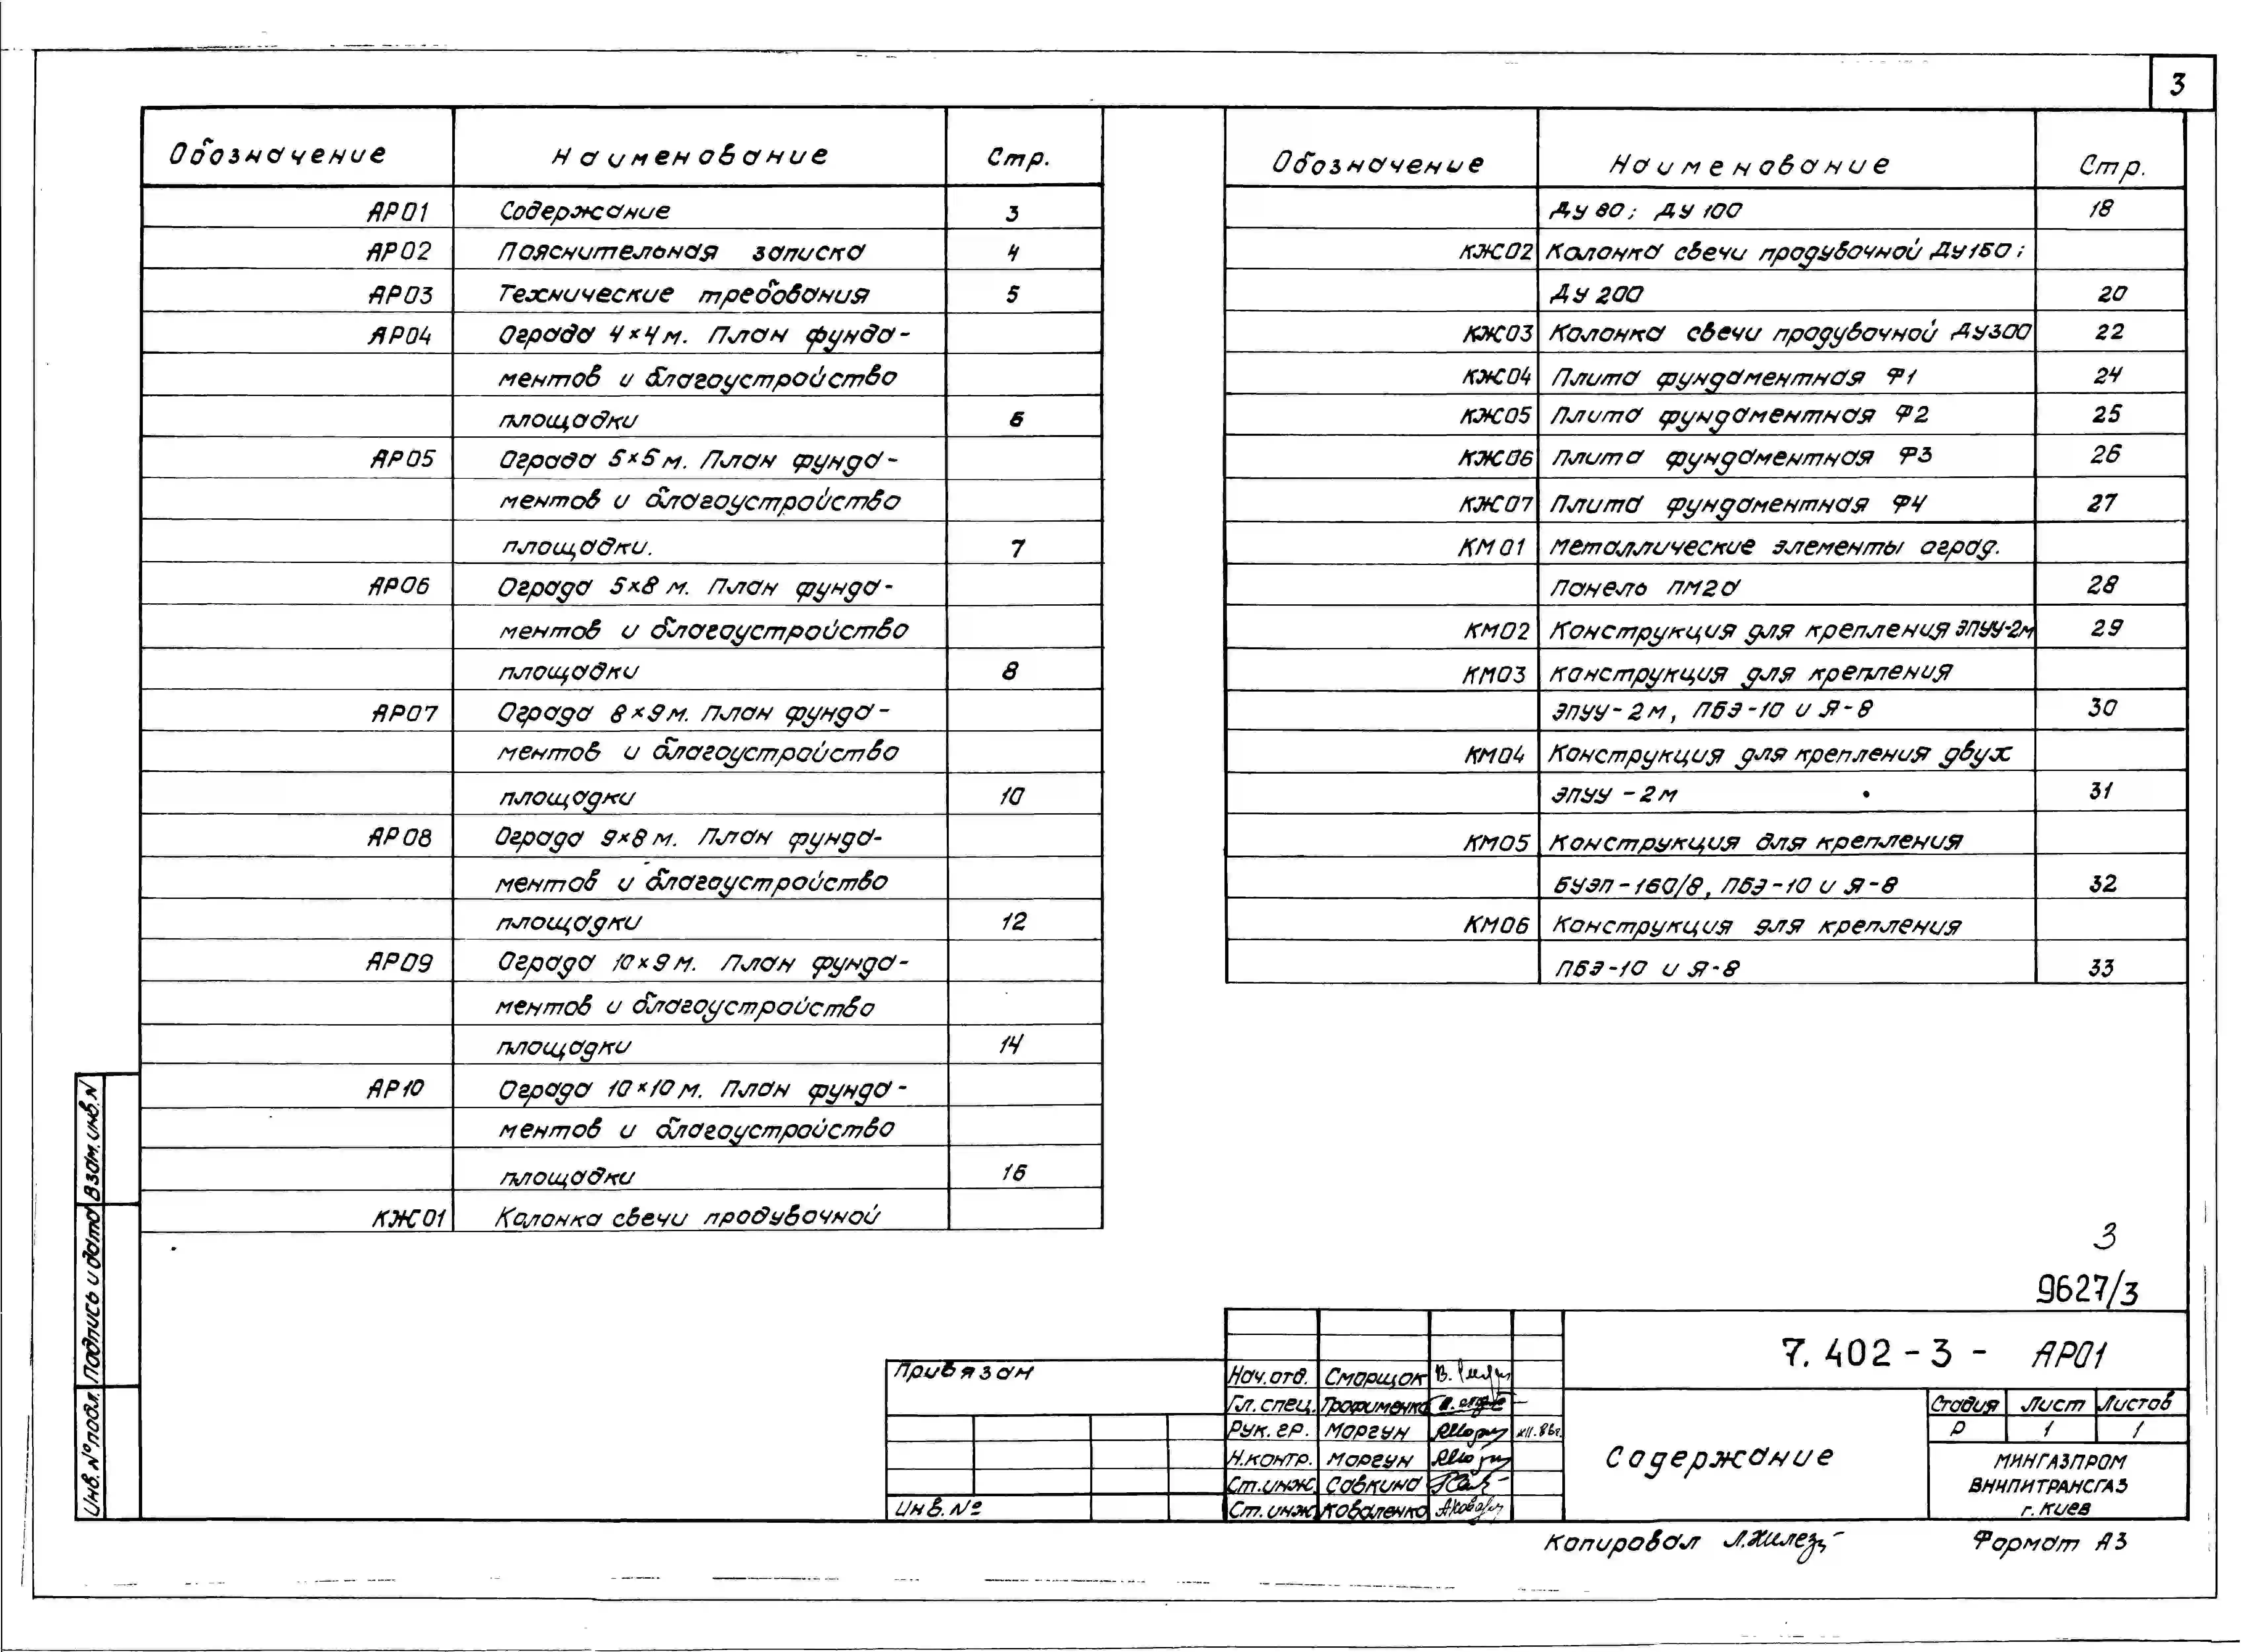 3
Обозначение Наименование Стр.
АР01 Содержание 3
АР02 Пояснительная записка 4
АР03 Технические требования 5
АР04 Ограда 4×4 м. План фунда-
ментов и благоустройство
площадки 6
АР05 Ограда 5×5 м. План фунда-
ментов и благоустройство
площадки. 7
АР06 Ограда 5×8 м. План фунда-
ментов и благоустройство
площадки 8
АР07 Ограда 8×9 м. План фунда-
ментов и благоустройство
площадки 10
АР08 Ограда 9×8 м. План фунда-
ментов и благоустройство
площадки 12
АР09 Ограда 10×9 м. План фунда-
ментов и благоустройство
площадки 14
АР10 Ограда 10×10 м. План фунда-
ментов и благоустройство
площадки 16
КЖ01 Колонка свечи продувочной
Обозначение Наименование Стр.
Ду 80; Ду 100 18
КЖ02 Колонка свечи продувочной Ду150;
Ду 200 20
КЖ03 Колонка свечи продувочной Ду300 22
КЖ04 Плита фундаментная Ф1 24
КЖ05 Плита фундаментная Ф2 25
КЖ06 Плита фундаментная Ф3 26
КЖ07 Плита фундаментная Ф4 27
КМ01 Металлические элементы оград.
Панель ПМ2а 28
КМ02 Конструкция для крепления ЭПУУ-2м 29
КМ03 Конструкция для крепления
ЭПУУ-2м, ПБЭ-10 и Я-8 30
КМ04 Конструкция для крепления двух
ЭПУУ-2м 31
КМ05 Конструкция для крепления
БУЭП-160/8, ПБЭ-10 и Я-8 32
КМ06 Конструкция для крепления
ПБЭ-10 и Я-8 33
Взам. инв. N
Подпись и дата
Инв. № подл.
3
9627/3
Привязан
Инв. №
Нач. отд. Сморщок
Гл. спец. Трофименко
Рук. гр. Моргун XII.86г.
Н. контр. Моргун
Ст. инж. Савкина
Ст. инж. Коваленко
7.402-3- АР01
Содержание
Стадия Лист Листов
Р 1 1
МИНГАЗПРОМ
ВНИПИТРАНСГАЗ
г. Киев
Копировал
Формат А3